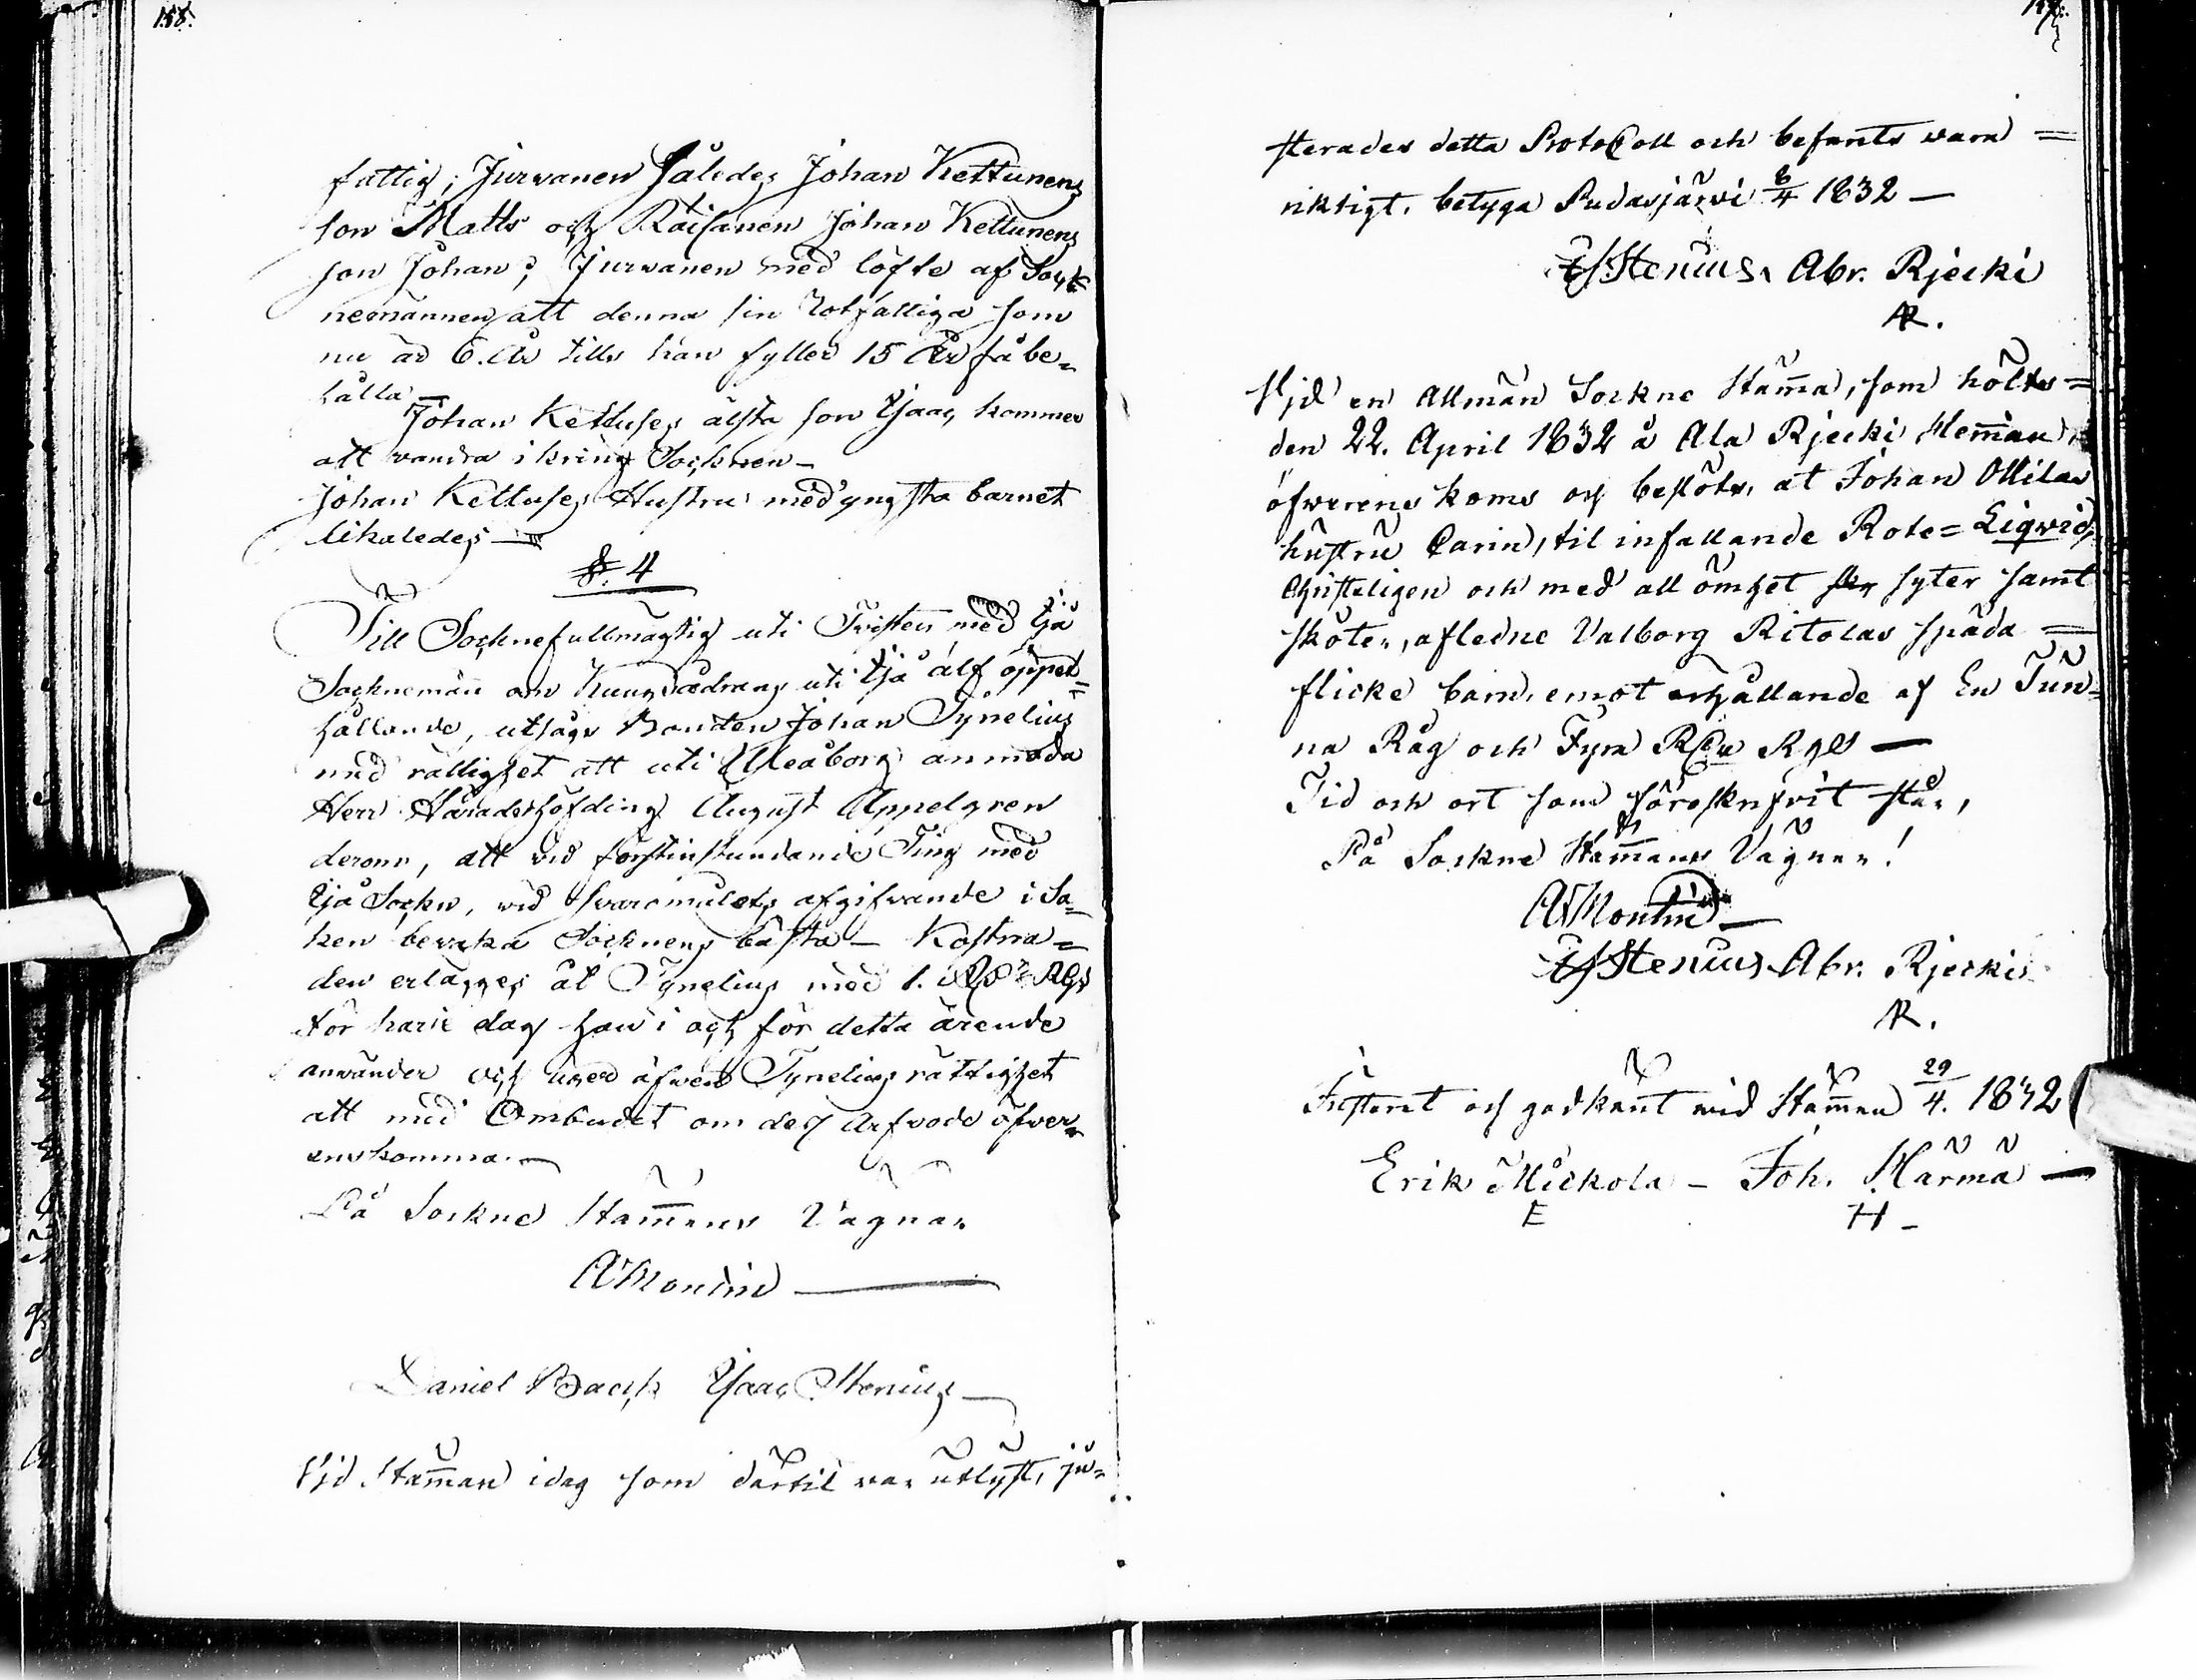 158.
fattig; Jurvanen således Johan Kettunens
son Matts och Räisänen Johan Kettunens
son Johan; Jurvanen med löfte af Sock
nemännen att denna sin Rotfattiga som
nu är 6. År tills han fyller 15 År få be=
hålla —
Johan Kettuses älsta son Isaac kommer
att vandra ikring Socknen —
Johan Kettuses Hustru med yngsta barnet
likaledes —
§. 4
Till Socknefullmägtig uti Tvisten med Ijå
Socknemän om Kungsådrans uti Ijå älf öppet=
hållande, utsågs Bonden Johan Tynelius
med rättighet att uti Uleåborg anmoda
Herr Häradshöfding August Appelgren
derom, att vid förstinstundande Ting med
Ijå Sockn, vid Svaromålets afgifvande i Sa=
ken bevaka Socknens bästa — Kostna=
den erlägges åt Tynelius med 1. Rbl Rgs
för hvarje dag han i och för detta ärende
använder och äger äfven Tynelius rättighet
att med Ombudet om dess Arfvode öfver=
enskomma. —
På Sockne Stämmans Vägnar
A Montin —
Daniel Back Isaac Stenius —
Vid Stämman idag som därtil var utlyst, ju=
sterades detta Protocoll och befants vara =
riktigt, betyga Pudasjärvi 8/4 1832 —
Is Stenius. Abr. Rjecki
AR.
Vid en Allmän Sockne Stämma, som hölts =
den 22. April 1832 å Ala Rjecki Hemman,
öfverens koms och beslöts, at Johan Ollilas
hustru Carin, til infallande Rote= Liqvid,
Christeligen och med all ömhet syter samt
sköter, afledne Valborg Ritolas späda =
flicke barn, emot erhållande af En Tun=
na Råg och Fyra Rbl Rgs —
Tid och ort som föreskrifvit står,
På Sockne Stämmans Vägnar!
A Montin —
Is Stenius Abr. Rjecki
AR.
Justerat och godkänt vid Stämman 29/4. 1832
Erik Mickola — Joh. Härmä —
E H —